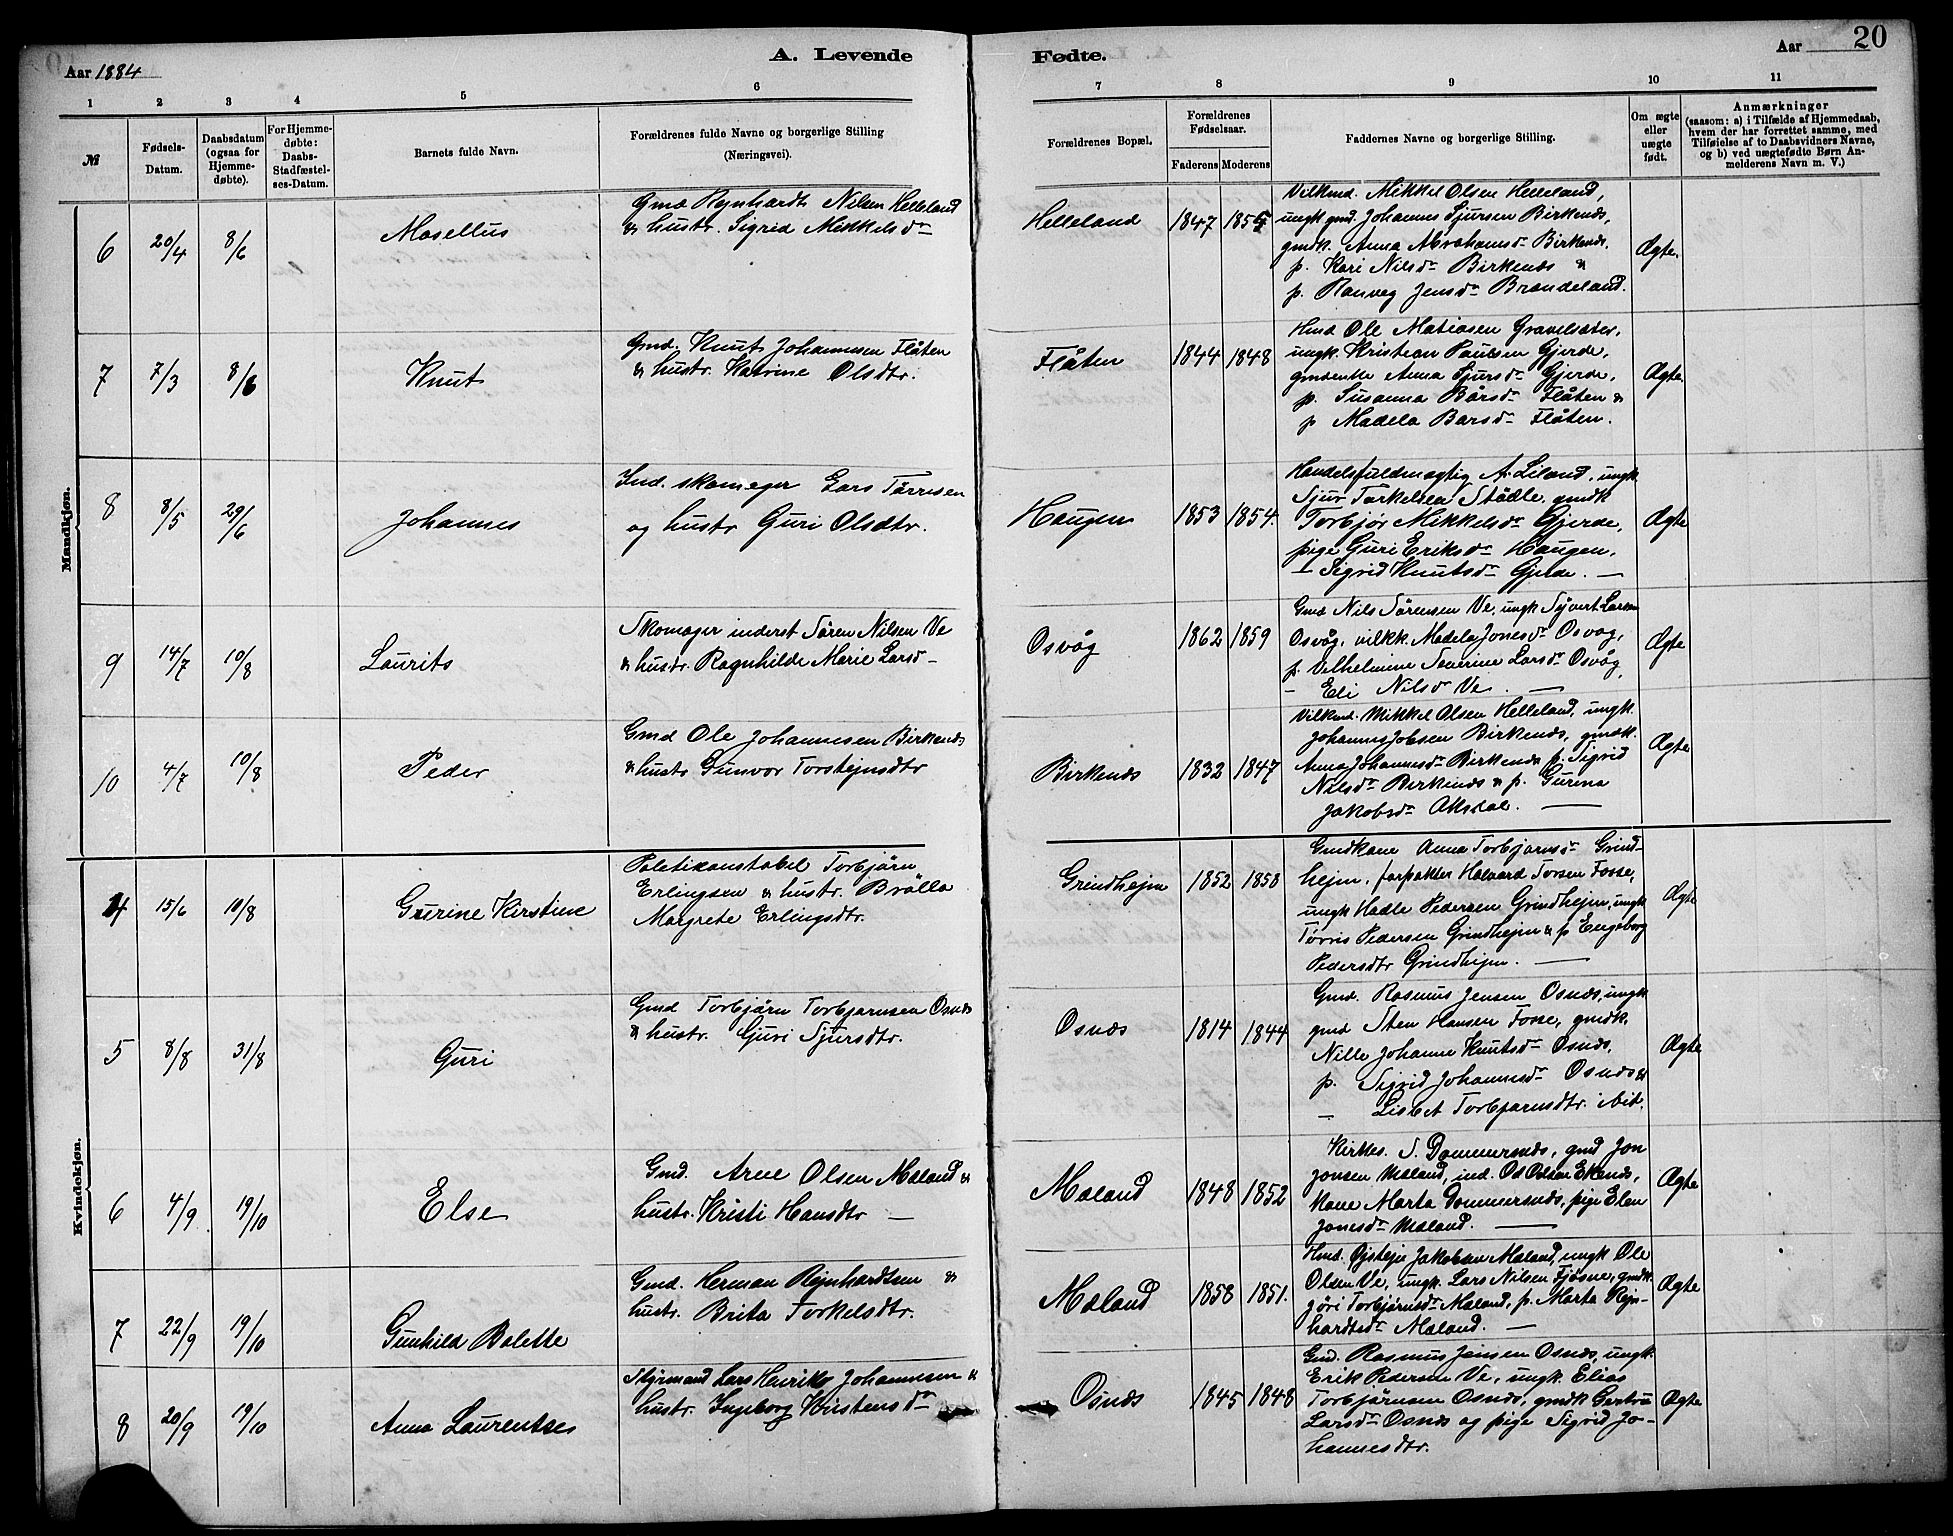 Aar 1884
A. Levende
Fødte.
Aar
20
1 2 3 4 5 6 7 8 9 10 11
№
Fødsels-
Datum.
Daabsdatum
(ogsaa for
Hjemme-
døbte).
For Hjemme-
døbte:
Daabs-
Stadfæstel-
ses-Datum.
Barnets fulde Navn.
Forældrenes fulde Navne og borgerlige Stilling
(Næringsvei).
Forældrenes Bopæl.
Forældrenes
Fødselsaar.
Faderens Moderens
Faddernes Navne og borgerlige Stilling.
Om ægte
eller
uægte
født.
Anmærkninger
(saasom: a) i Tilfælde af Hjemmedaab,
hvem der har forrettet samme, med
Tilføielse af to Daabsvidners Navne,
og b) ved uægtefødte Børn An-
melderens Navn m. V.)
Mandkjøn.
6 20/4 8/6 Mosellus
Gmd Reynhardt Nilsen Helleland
& hustr. Sigrid Mikkelsdr
Helleland 1847 1855
Vilkmd. Mikkel Olsen Helleland,
ungk gmd. Johannes Sjursen Birkenes,
gmdk. Anna Abrahamsdr Birkenes,
p. Kari Nilsdr Birkenes &
p. Ranveg Jensdr Brandeland.
Ægte.
7 7/3 8/6 Knut
Gmd. Knut Johannesen Flåten
& hustr. Katrine Olsdtr.
Flåten 1844 1848
Hmd Ole Matiasen Gravelsæter,
ungk. Kristian Paulsen Gjerde,
gmdenke Anna Sjursdr Gjerde,
p. Susanna Bårsdr Flåten &
p Madela Barsdr Flåten.
Ægte.
8 8/5 29/6 Johannes
Ind. skomager Lars Tørrisen
og hustr Guri Olsdtr.
Haugen 1853 1854.
Handelsfuldmægtig A. Liland, ungk
Sjur Torkelsen Stødle, gmdk
Torbjør Mikkelsdr Gjerde,
pige Guri Eriksdr Haugen,
— Sigrid Knutsdr Gjerde. —
Ægte
9 14/7 10/8 Laurits
Skomager inderst Søren Nilsen Ve
& hustr. Ragnhilde Marie Larsd-
Osvåg 1862 1859
Gmd Nils Sørensen Ve, ungk Syvert Larsen
Osvåg, vilkk. Madela Jonesdr Osvåg,
p. Vilhelmine Severine Larsdr Osvåg,
— Eli Nilsdr Ve. —
Ægte
10 4/7 10/8 Peder
Gmd Ole Johannesen Birkenes
& hustr Gunvor Torstejnsdtr
Birkenes 1832 1847
Vilkmd. Mikkel Olsen Helleland, ungk.
Johannes Jobsen Birkenes, gmdk.
Anna Johannesdr Birkenes p. Sigrid
Nilsdr Birkenes & p. Gurina
Jakobsdr Aksdal. —
Ægte
Kvindekjøn.
4 15/6 10/8 Gurine Kirstine
Politikonstabel Torbjørn
Erlingsen & hustr. Brølla
Margrete Erlingsdtr.
Grindhejm 1852 1858
Gmdkone Anna Torbjørnsdr Grind-
hejm, forpakter Halvard Torsen Fosse,
ungk Hadle Pedersen Grindhejm, ungk
Tørris Pedersen Grindhejm & p Engeborg
Pedersdtr Grindhejm. —
Ægte
5 8/8 31/8 Guri
Gmd Torbjørn Torbjørnsen Osnes
& hustr. Guri Sjursdtr.
Osnes 1814 1844
Gmd. Rasmus Jensen Osnes, ungk
gmd Sten Hansen Fosse, gmdk.
Nille Johanne Knutsdr Osnes,
p. Sigrid Johannesdr Osnes &
— Lisbet Torbjørnsdtr ibid.
Ægte
6 4/9 19/10 Else
Gmd. Arne Olsen Maland &
hustr. Kristi Hansdtr —
Maland 1848 1852
Kirkes. S. Dommersnes, gmd Jon
Jonsen Maland, ind. Os Olsen Ekenes,
Kone Marta Dommersnes, pige Elen
Jonesdr Maland. —
Ægte
7 22/9 19/10 Gunhild Bolette
Gmd. Herman Rejnhardtsen &
hustr. Brita Torkelsdtr.
Maland 1858 1851.
Hmd. Øistejn Jakobsen Maland, ungk Ole
Olsen Ve, ungk. Lars Nilsen Fjøsne, gmdk.
Jøri Torbjørnsdr Maland, p. Marta Rejn-
hardtsdr Maland. —
Ægte
8 20/9 19/10 Anna Laurentse
Styrmand Lars Henrik Johannesen &
hustr. Ingeborg Kirstensdr
Osnes 1845 1848
Gmd. Rasmus Jensen Osnes, ungk.
Erik Pedersen Ve, ungk. Elias
Torbjørnsen Osnes, gmdk Gertru
Larsdr Osnes og pige Sigrid Jo-
hannesdtr.
Ægte